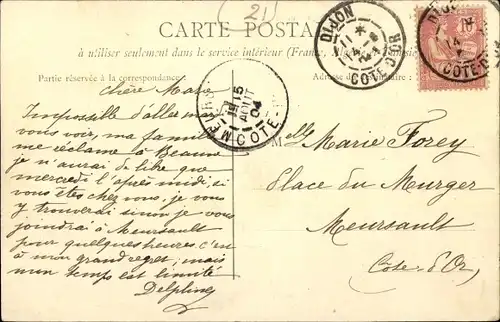 (21)
CARTE POSTALE
à utiliser seulement dans le service intérieur (France, Algérie
Partie réservée à la correspondance.
Adresse du
chère Marie
Impossible d'aller
vous voir, ma famille
me réclame à Beaune
je n'aurai de libre que
mercredi l'après midi, si
vous êtes chez vous, je vous
y trouverai sinon je vous
joindrai à Meursault
pour quelques heures c'en
à mon grand regret; mais
mon temps est limité
Delphine
Melle Marie Forey
Place du Murger
Meursault
Côte d'Or
DIJON
COTE-D'OR
15
AOUT
04
COTE-
10
COTE-D'